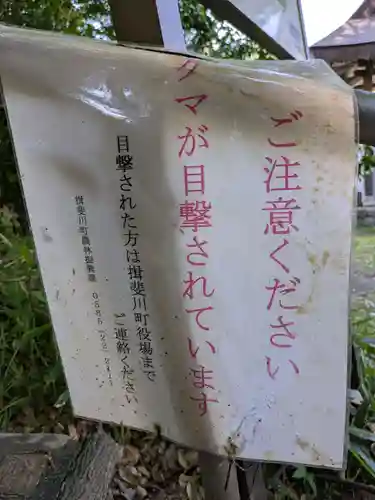 ご注意ください
クマが目撃されています
目撃された方は揖斐川町役場まで
ご連絡ください
揖斐川町農林振興課